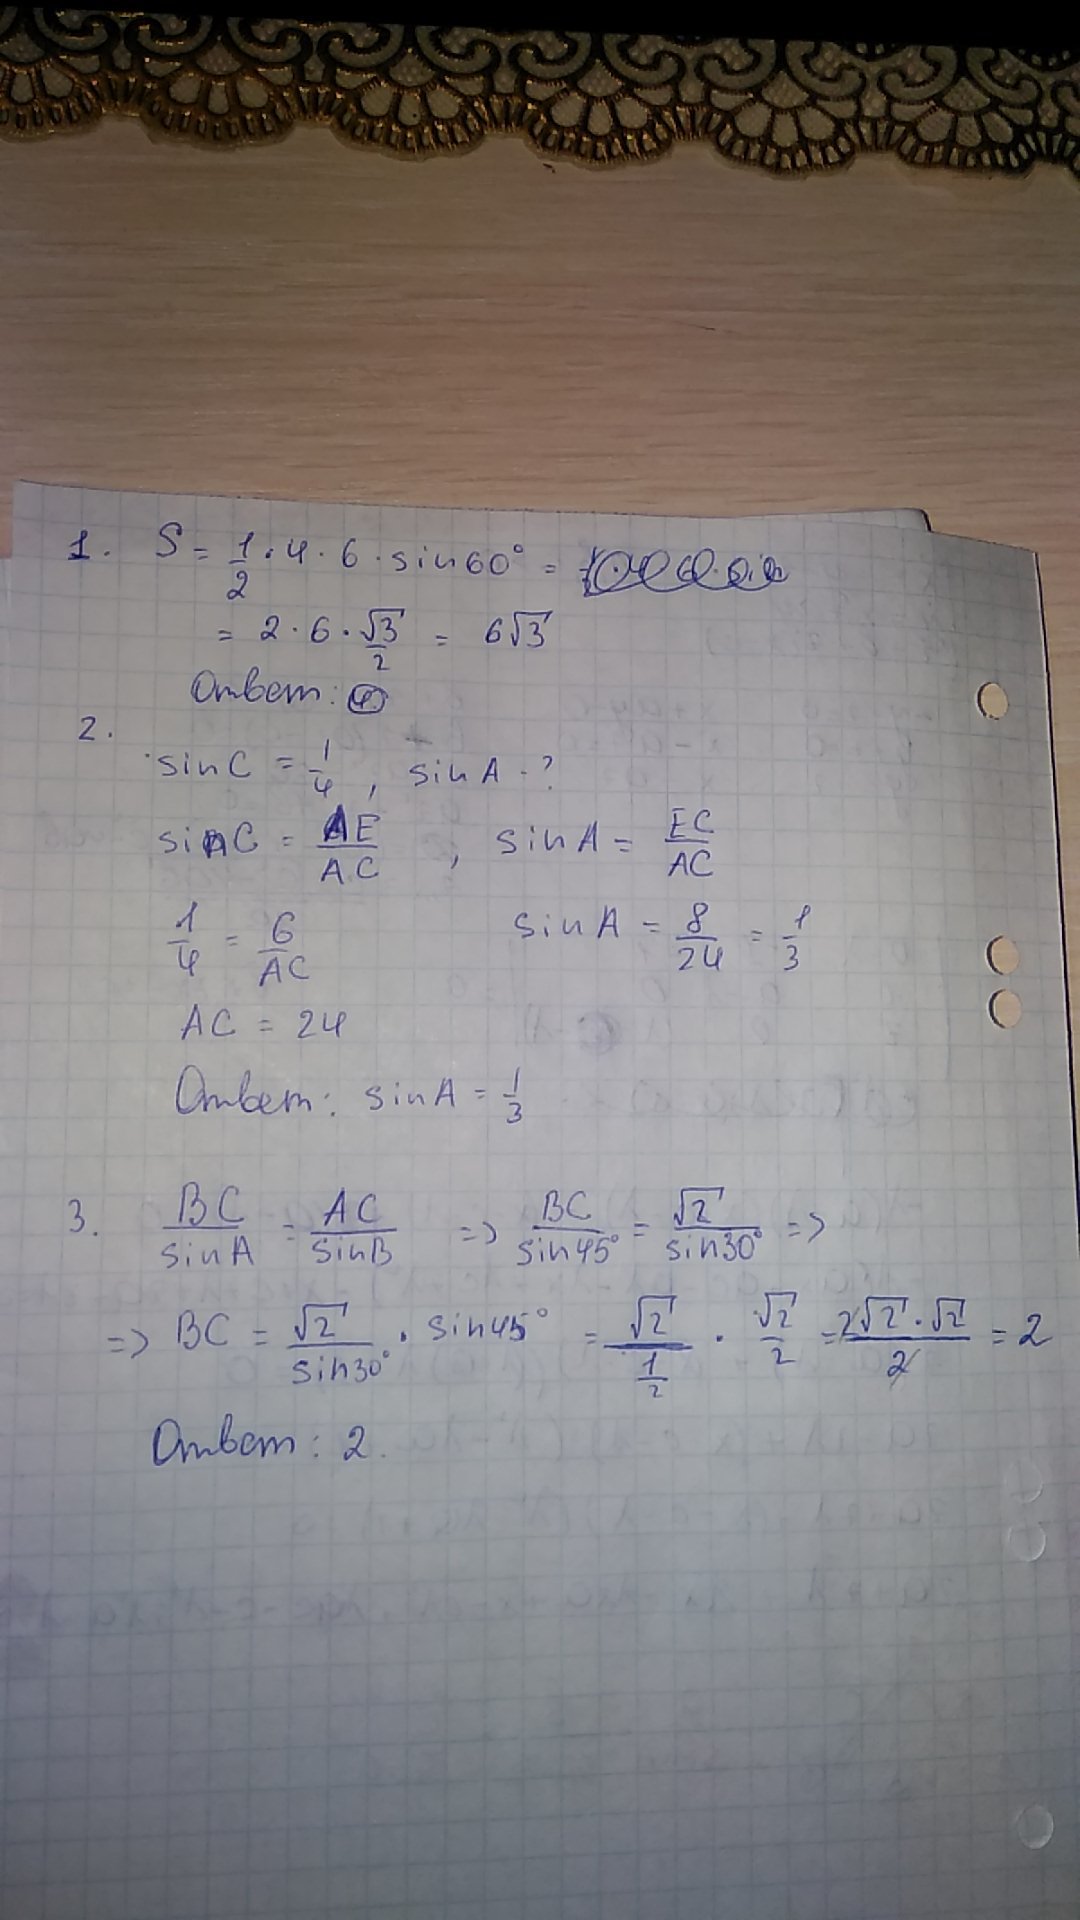 1. S = 1/2 · 4 · 6 · sin60° =
= 2 · 6 · √3/2 = 6√3
Ответ: 4
2.
sinC = 1/4, sinA - ?
sinC = AE/AC, sinA = EC/AC
1/4 = 6/AC sinA = 8/24 = 1/3
AC = 24
Ответ: sinA = 1/3
3. BC/sinA = AC/sinB => BC/sin45° = √2/sin30° =>
=> BC = √2/sin30° · sin45° = √2/(1/2) · √2/2 = 2√2·√2/2 = 2
Ответ: 2.